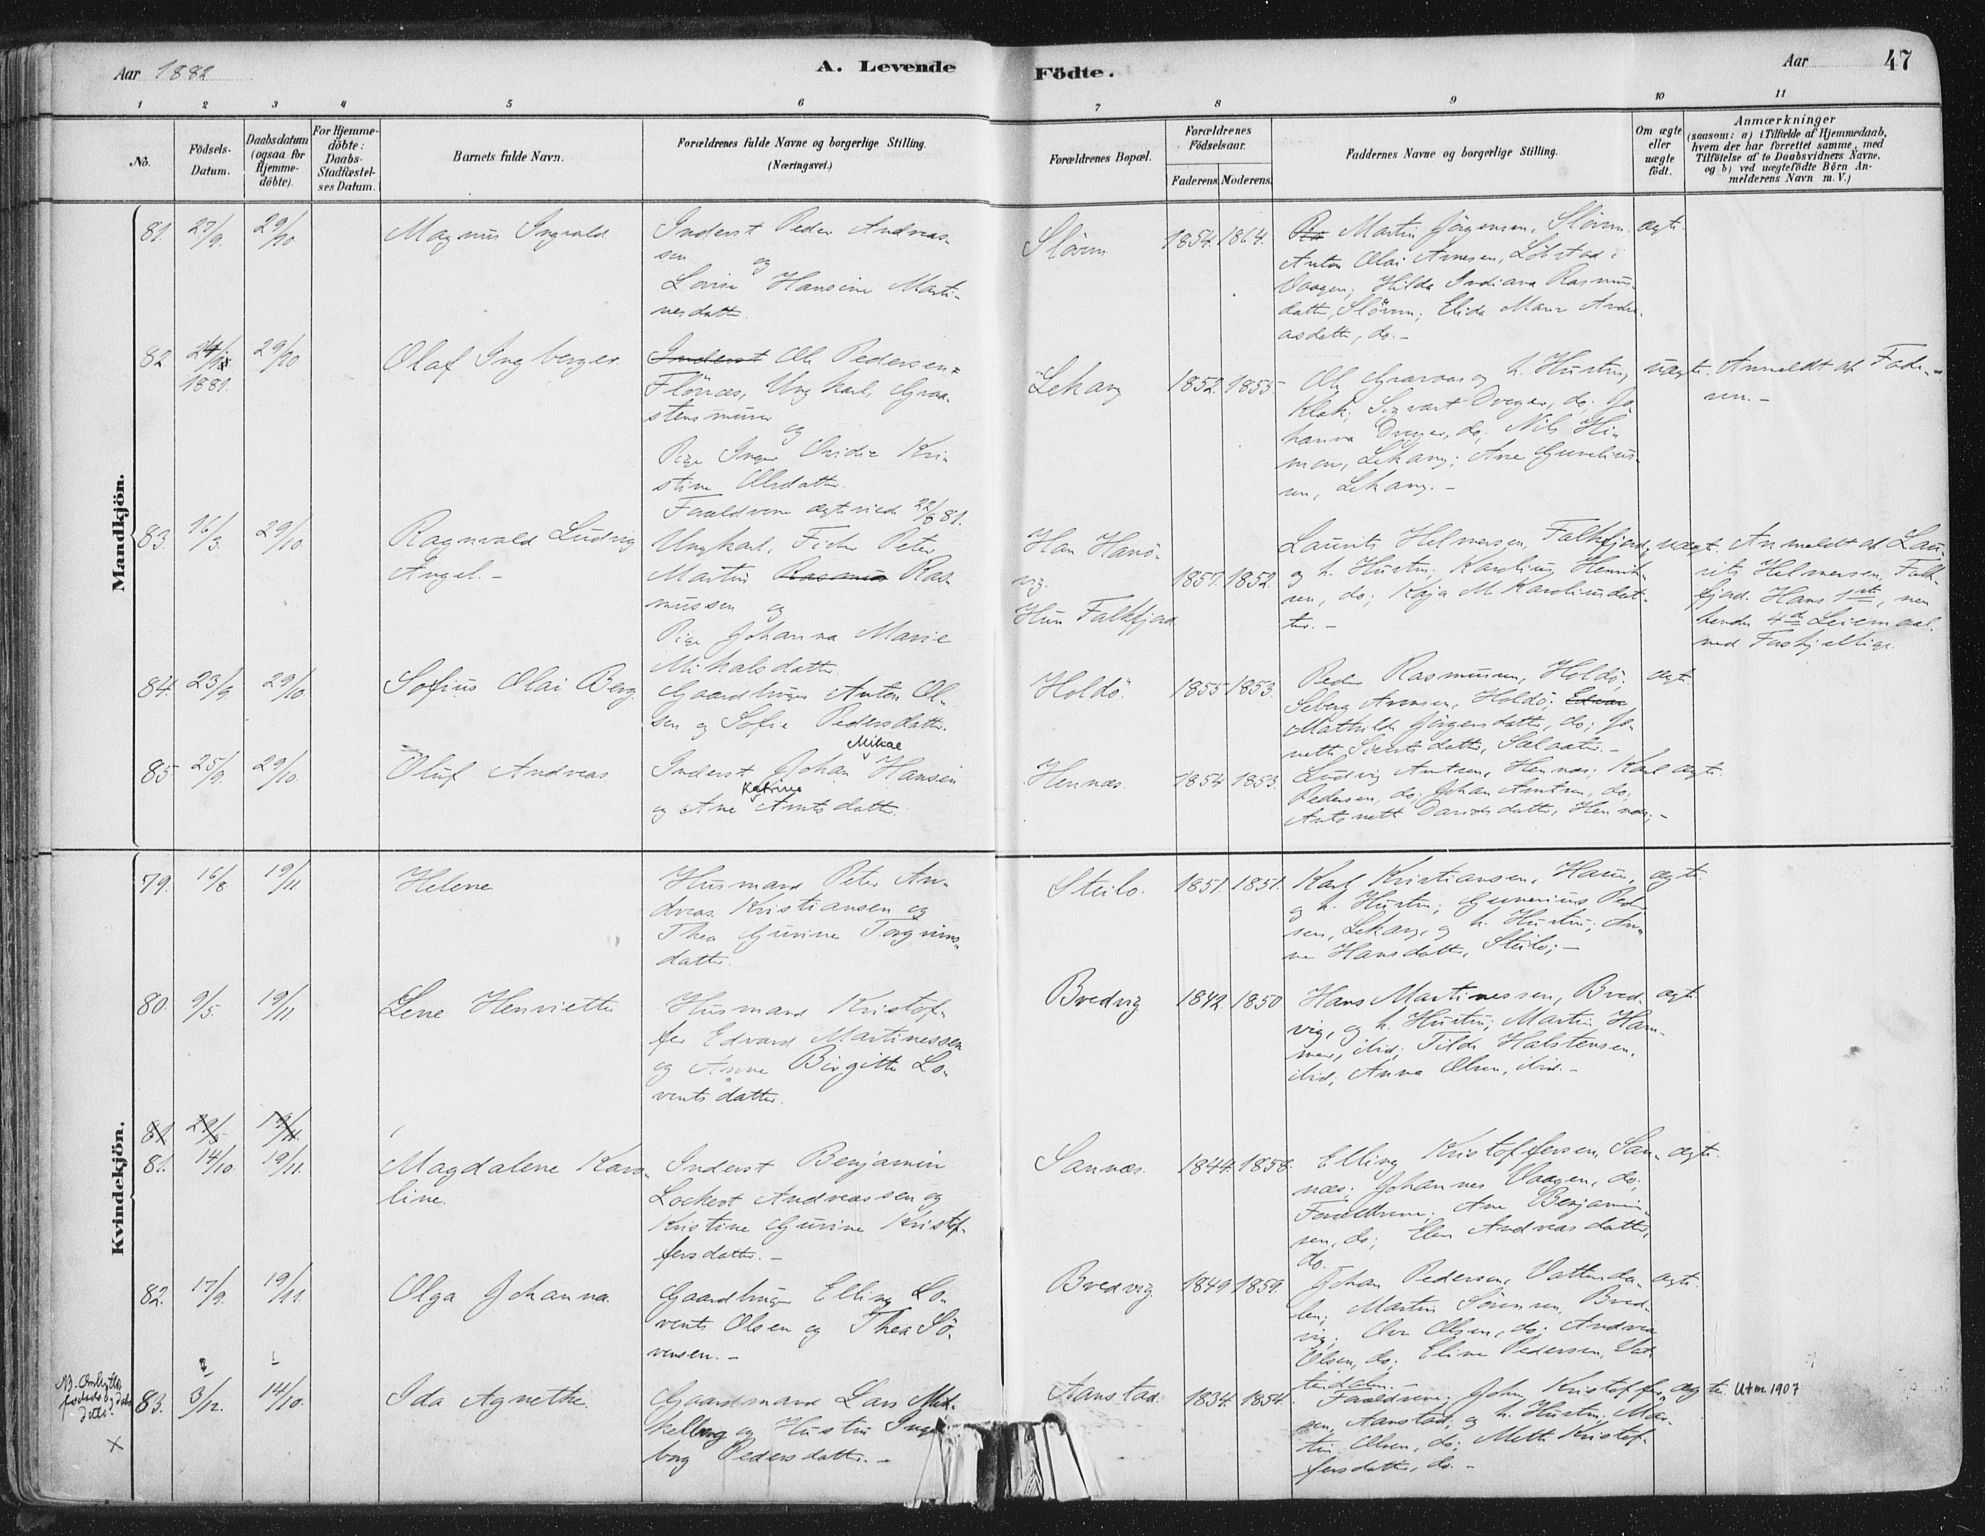 Aar 1882
A. Levende
Födte.
Aar
47
1 2 3 4 5 6 7 8 9 10 11
No.
Födsels-
Datum.
Daabsdatum
(ogsaa for
Hjemme-
döbte).
For Hjemme-
döbte:
Daabs-
Stadfæstel-
ses Datum.
Barnets fulde Navn.
Forældrenes fulde Navne og borgerlige Stilling.
(Næringsvei.)
Forældrenes Bopæl.
Forældrenes
Födselsaar.
Faderens. Moderens.
Faddernes Navne og borgerlige Stilling.
Om ægte
eller
uægte
födt.
Anmærkninger
(saasom: a) i Tilfælde af Hjemmedaab,
hvem der har forrettet samme, med
Tilföielse af to Daabsvidners Navne,
og b) ved uægtefödte Börn An-
melderens Navn m. V.)
Mandkjön.
81. 27/9. 29/10
Magnus Ingvald
Inderst Peder Andreas-
sen og
Lovise Hansine Marti-
nesdatter.
Slöven
1854. 1864.
Martin Jörgensen, Slöven.
Anton Olai Arnesen, Löbstad i
Vaagen; Hilda Indiana Rasmus-
datter, Slöven; Elida Marie Andre-
asdatt, do.-
ægte.
82. 29/10
1881.
Olaf Ingberger.
Inderst Ole Pedersen
Flönæs, Ungkarl, Graa-
stensmurer
og
Pige Inger Ovidie Kri-
stine Olsdatter.
Forældrene ægteviede 22/8 81.
Lekang
1852. 1855.
Ole Graavas og h. Hustru,
Klak; Sigvart Dreyer, do; Jo-
hanna Dreyer, do; Nils Hi-
mon, Lekang; Ane Gunelius-
sen, Lekang.-
uægte.
Anmeldt af Fade-
ren.-
83. 16/3. 29/10.
Ragnvald Ludvig
Angel.-
Ungkarl, Fisker Peter
Martin Rasmus Ras-
mussen og
Pige Johanna Marie
Mikalsdatter.
Han Hanö-
vig.
Hun Falkfjord
1857. 1852.
Laurits Helmersen, Falkfjord,
og h. Hustru; Karolius Henrik-
sen, do; Kaja M. Karoliusdat-
ter.-
uægte.
Anmeldt af Lau-
rits Helmersen, Falk-
fjord. Hans 1ste, men
hendes 4de Leiermaal
med Forskjellige.
84. 23/9. 29/10.
Sofius Olai Berg.
Gaardbruger Anton Ol-
sen og Sofie Pedersdatter.
Holdö.
1855 1853.
Peder Rasmussen, Holdö;
Seberg Arnesen, Holdö; Edvar
Mathilde Jörgensdatter, do; Jo-
nette Sivertsdatter, Salvater.-
ægte
85. 25/9. 29/10.
Oluf Andreas
Mikal
Inderst Johan Hansen
Katrine
og Ane Arntsdatter.
Hennæs.
1854 1853.
Ludvig Arntsen, Hennæs; Karl
Pedersen, do; Johan Arntsen, do;
Antonette Davidsdatter, Hennæs.-
ægte.
Kvindekjön.
79. 16/8 19/11
Helene
Husmand Peter An-
dreas Kristiansen og
Thea Gurine Torgrims-
datter.
Steilo.
1851. 1851.
Karl Kristiansen, Haun,
og h. Hustru; Gunerius Peder-
sen, Lekang, og h. Hustru; An-
ne Hansdatter, Steilo;-
ægte.
80. 9/5. 19/11.
Lene Henriette
Husmand Kristof-
fer Edvard Martinessen
og Anne Birgitte Lo-
rentsdatter.
Bredvig
1842. 1850
Hans Martinessen, Bred-
vig, og h. Hustru; Martin Ham-
mer, ibid; Tilda Halstensen,
ibid; Anna Olsen, ibid.-
ægte.
81 29/5 19/11
81. 14/10. 19/11.
Magdalene Karo-
line.
Inderst Benjamin
Lockert Andreassen og
Kristine Gurine Kristof-
fersdatter.-
Sannæs.
1844. 1858.
Elling Kristoffersen, San-
næs; Johannes Vaagen, do;
Forældrene; Ane Benjamin-
sen, do; Elen Andreasdatter,
do.
ægte.
82. 17/9. 19/11.
Olga Johanna
Gaardbruger Elling Lo-
rents Olsen og Thea Sö-
rensen.-
Bredvig
1849 1859.
Johan Pedersen, Vattenda-
len; Martin Sörensen, Bred-
vig; Ole Olsen, do; Andrea
Olsen, do; Eline Pedersen, Vat-
tendalen.-
ægte.
2 1
NB. Ombyttes
födsels og daabs
datto.
X
83. 3/12. 14/10.
Ida Agnethe.
Gaardmand Lars Mik-
kelborg og Hustru Inge-
borg Pedersdatter.-
Aanstad.
1834. 1854.
Forældrene; John Kristoffer-
sen, Aanstad, og h. Hustru; Mar-
tin Olsen, do; Mette Kristof-
fersdatter, do.-
ægte.
Utm. 1907